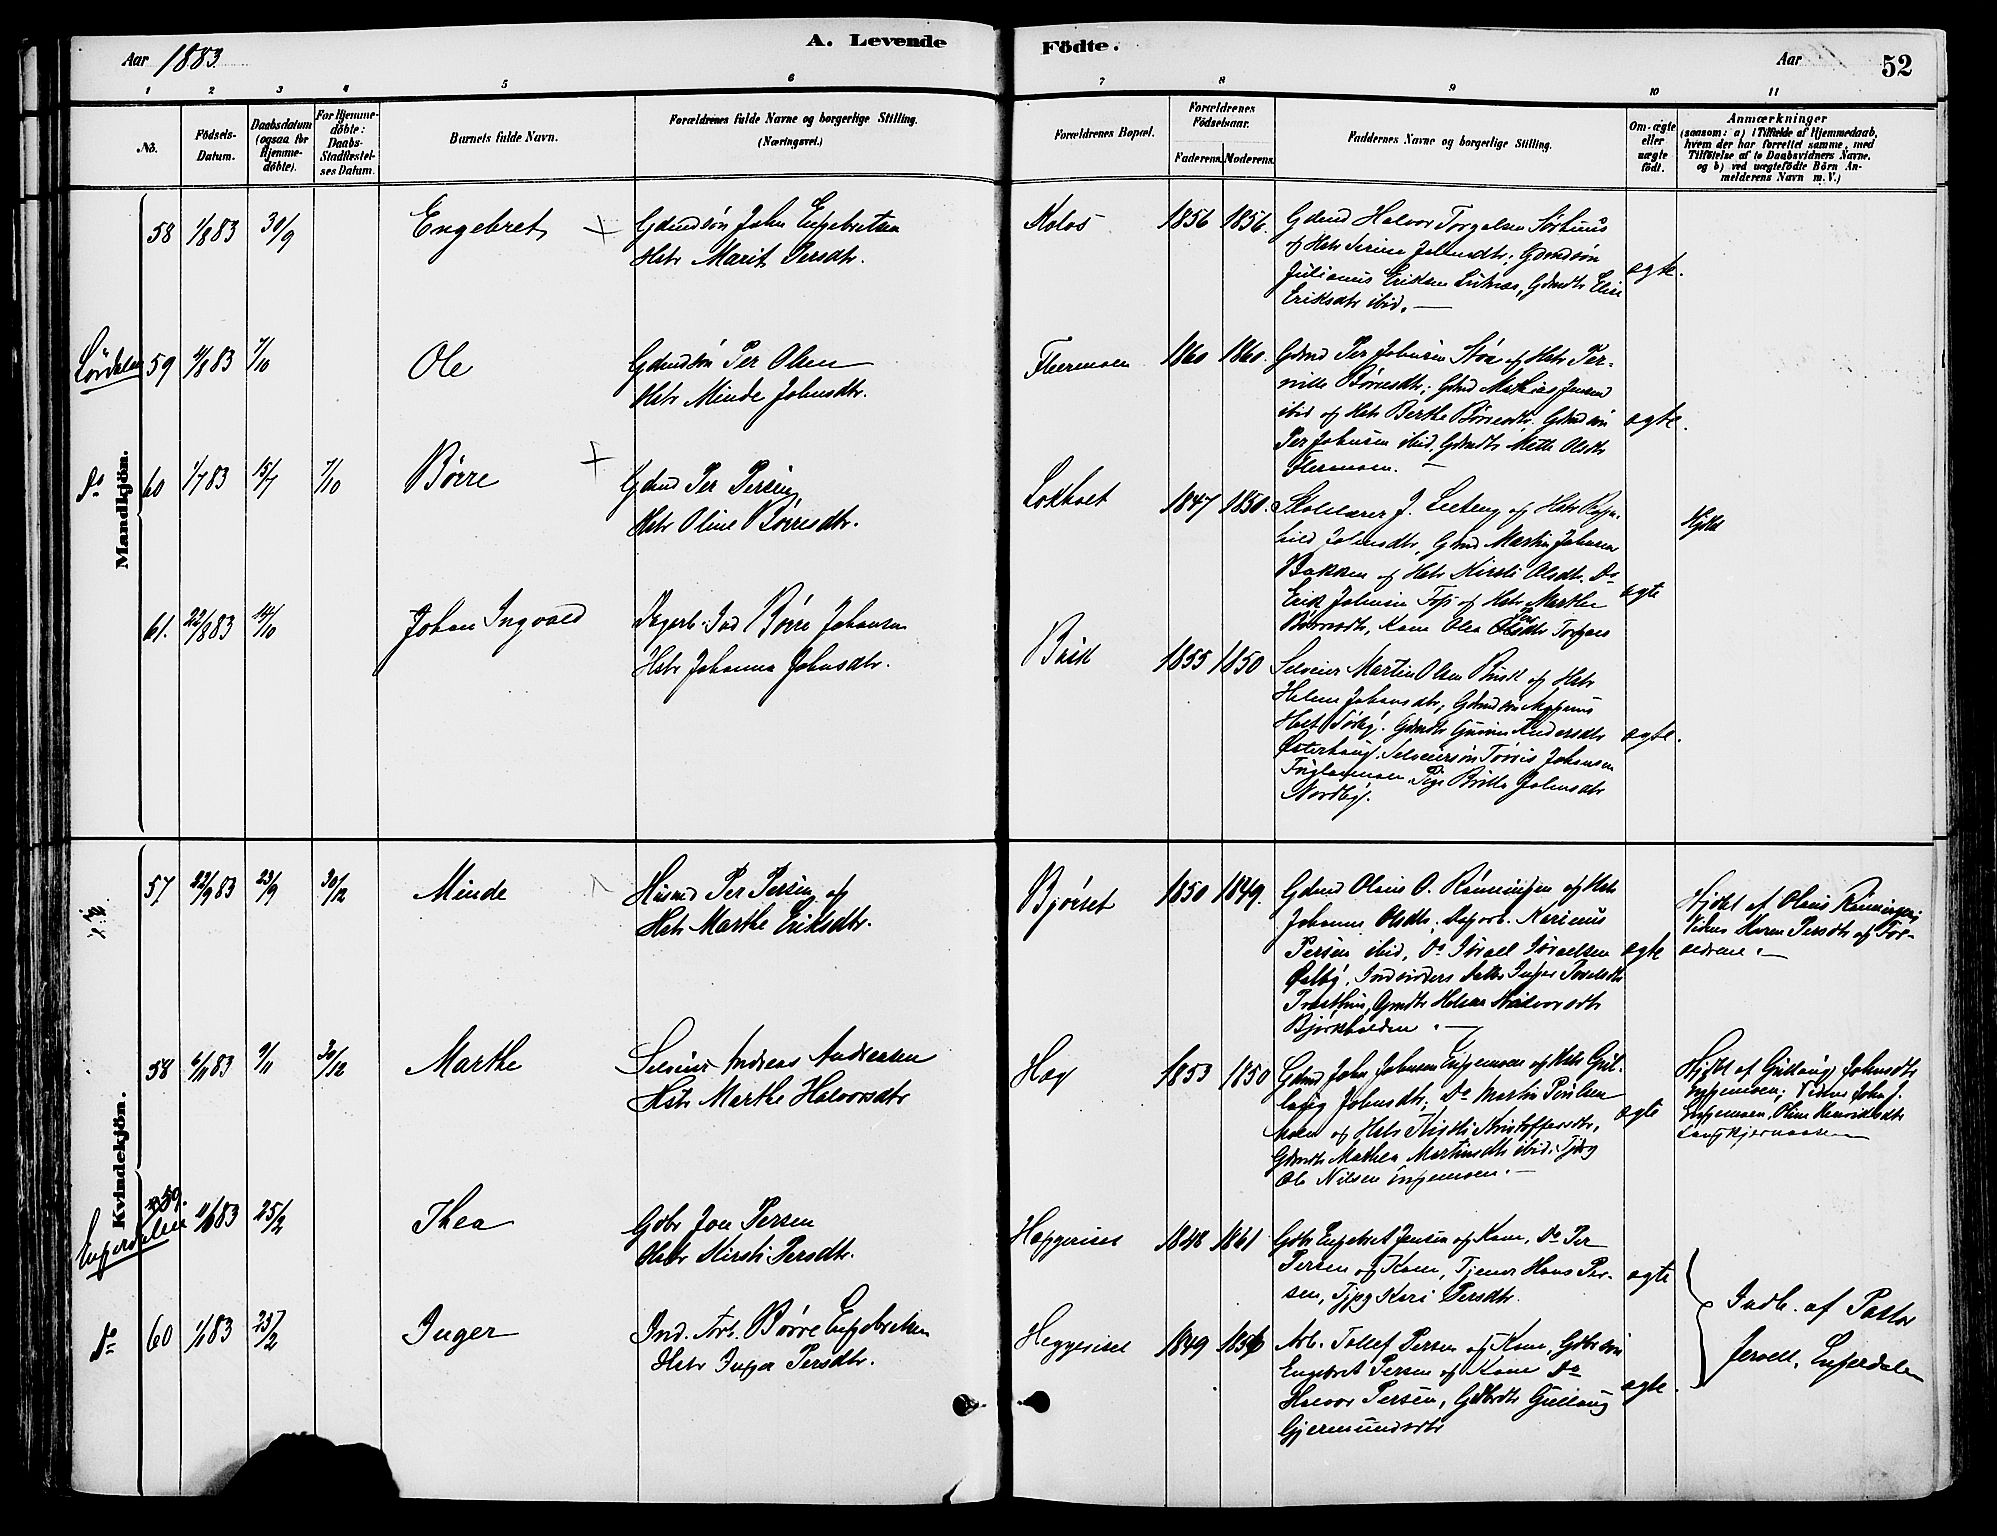 Aar 1883
A. Levende
Födte.
Aar
52
1
2
3
4
5
6
7
8
9
10
11
No.
Födsels-
Datum.
Daabsdatum
(ogsaa for
Hjemme-
döbte).
For Hjemme-
döbte:
Daabs-
Stadfæstel-
ses Datum.
Barnets fulde Navn.
Forældrenes fulde Navne og borgerlige Stilling.
(Næringsvei.)
Forældrenes Bopæl.
Forældrenes
Födselsaar.
Faderens.
Moderens.
Faddernes Navne og borgerlige Stilling.
Om ægte
eller
uægte
födt.
Anmærkninger
(saasom: a) i Tilfælde af Hjemmedaab,
hvem der har forrettet samme, med
Tilföielse af to Daabsvidners Navne,
og b) ved uægtefödte Börn An-
melderens Navn m. V.)
Mandkjön.
58
1/8 83
30/9
Engebret
Gdmdsøn John Engebretsen
Hstr Marit Persdtr.
Kolos
1856
1856.
Gdmd Halvor Torgalsen
of Hstr Serine Johnsdtr, Gdmdsøn
Julianus Eriksen Lutnæs, Gdmdtr Elise
Eriksdtr ibid.
ægte.
Lørdalen
59
/8 83
7/10
Ole
Gdmdsøn Per Olsen
Hstr Minde Johnsdtr.
Flermoen
1860
1860.
Gdmd Per Johnsen Støa of Hstr Per-
nille Børresdtr, Gdmd Mathias Jensen
ibid of Hstr Berthe Børresdtr. Gdmdsøn
Per Johnsen ibid, Gdmdtr Mette Olsdtr
Flermoen.
ægte.
Do
60
1/7 83
15/7
7/10
Børre
Gdmd Per Persen,
Hstr Oline Børresdtr.
Lokholt
1847
1850.
Skolelærer J. of Hstr Ragn-
hild Johnsdtr, Gdmd Martin Johnsen
Bakken of Hstr Kirsti Olsdtr. Do
Erik Johnsen of Hstr Marthe
Børresdtr, Kone Olea
ægte
Hjdbt
61.
22/8 83
14/10
Johan Ingvald
Dagarb. Ind Børre Johansen
Hstr Johanna Johnsdtr.
Brisk
1855
1850
Selveier Martin Olsen Brisk of Hstr
Helene Johansdtr, Gdmdsøn Magnus
Gdmdtr Gunine Andersdtr
Østerhaug. Selveiersøn Johansen
Pige Britha Johnsdtr
Nordby.
ægte.
Kvindekjön.
57
22/9 83
23/9
30/12
Minde
Husmd Per Persen of
Hstr Marthe Eriksdtr.
Bjørset
1850
1849.
Gdmd Olaus O. Rønningen of Hstr
Johanne Olsdtr, Dagarb. Karinus
Persen ibid, Do Israel Israelsen
Galby, Indsidders Datter Inger
Gmdtr Helene Halvorsdtr
Bjørkholden.
ægte
Hjdbt af Olaus Rønningen,
Vidner Karen Persdtr of For-
ældrene.
58
6/11 83
9/11
30/12
Marthe
Selveier Andreas Andreasen
Hstr Marthe Halvorsdtr
Hag
1853
1850
Gdmd John Johnsen Engermoen of Hstr Gul-
laug Johnsdtr, Do Martin Poulsen
Moen of Hstr Kristoffersdtr,
Gdmdtr Mathea Martinsdtr ibid, Tjkg
Ole Nilsen Engermoen.
ægte
Hjdbt af Gullaug Johnsdtr
Engermoen; Vidner John J.
Engermoen, Oline Henriksdtr
Langkjernaasen
Engerdalen
59.
83
25/2
Thea
Gdbr Jon Persen
Hstr Kirsti Persdtr.
Heggeriset
1848
1861
Gdbr Engebret Jensen of Kone, Do Per
Persen of Kone, Tjener Hans Per-
sen, Tjpg Kari Persdtr.
ægte
Do
60
83
25/2
Inger
Ind. Arb. Børre Engebretsen
Hstr Inger Persdtr.
Heggeriset
1849
Arb. Tollef Persen of Kone, Gdbrsøn
Engebret Persen of Kone Do
Halvor Persen, Gdbrdtr Gullaug
Gjermundsdtr
ægte.
Indb. af Pastor
Jervell, Engerdalen